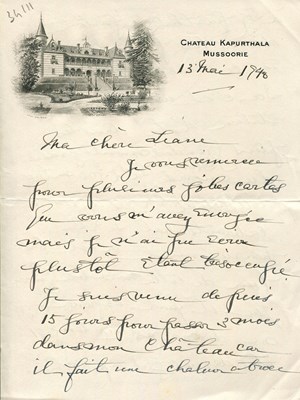 34111
CHATEAU KAPURTHALA
MUSSOORIE
13 Mai 1948
Ma chère Liane
Je vous remercie
pour plusieurs jolies cartes
que vous m'avez envoyée
mais je n'ai pu écrire
plustôt étant très occupé.
Je suis venu depuis
15 jours pour passer 3 mois
dans mon Château car
il fait une chaleur atroce